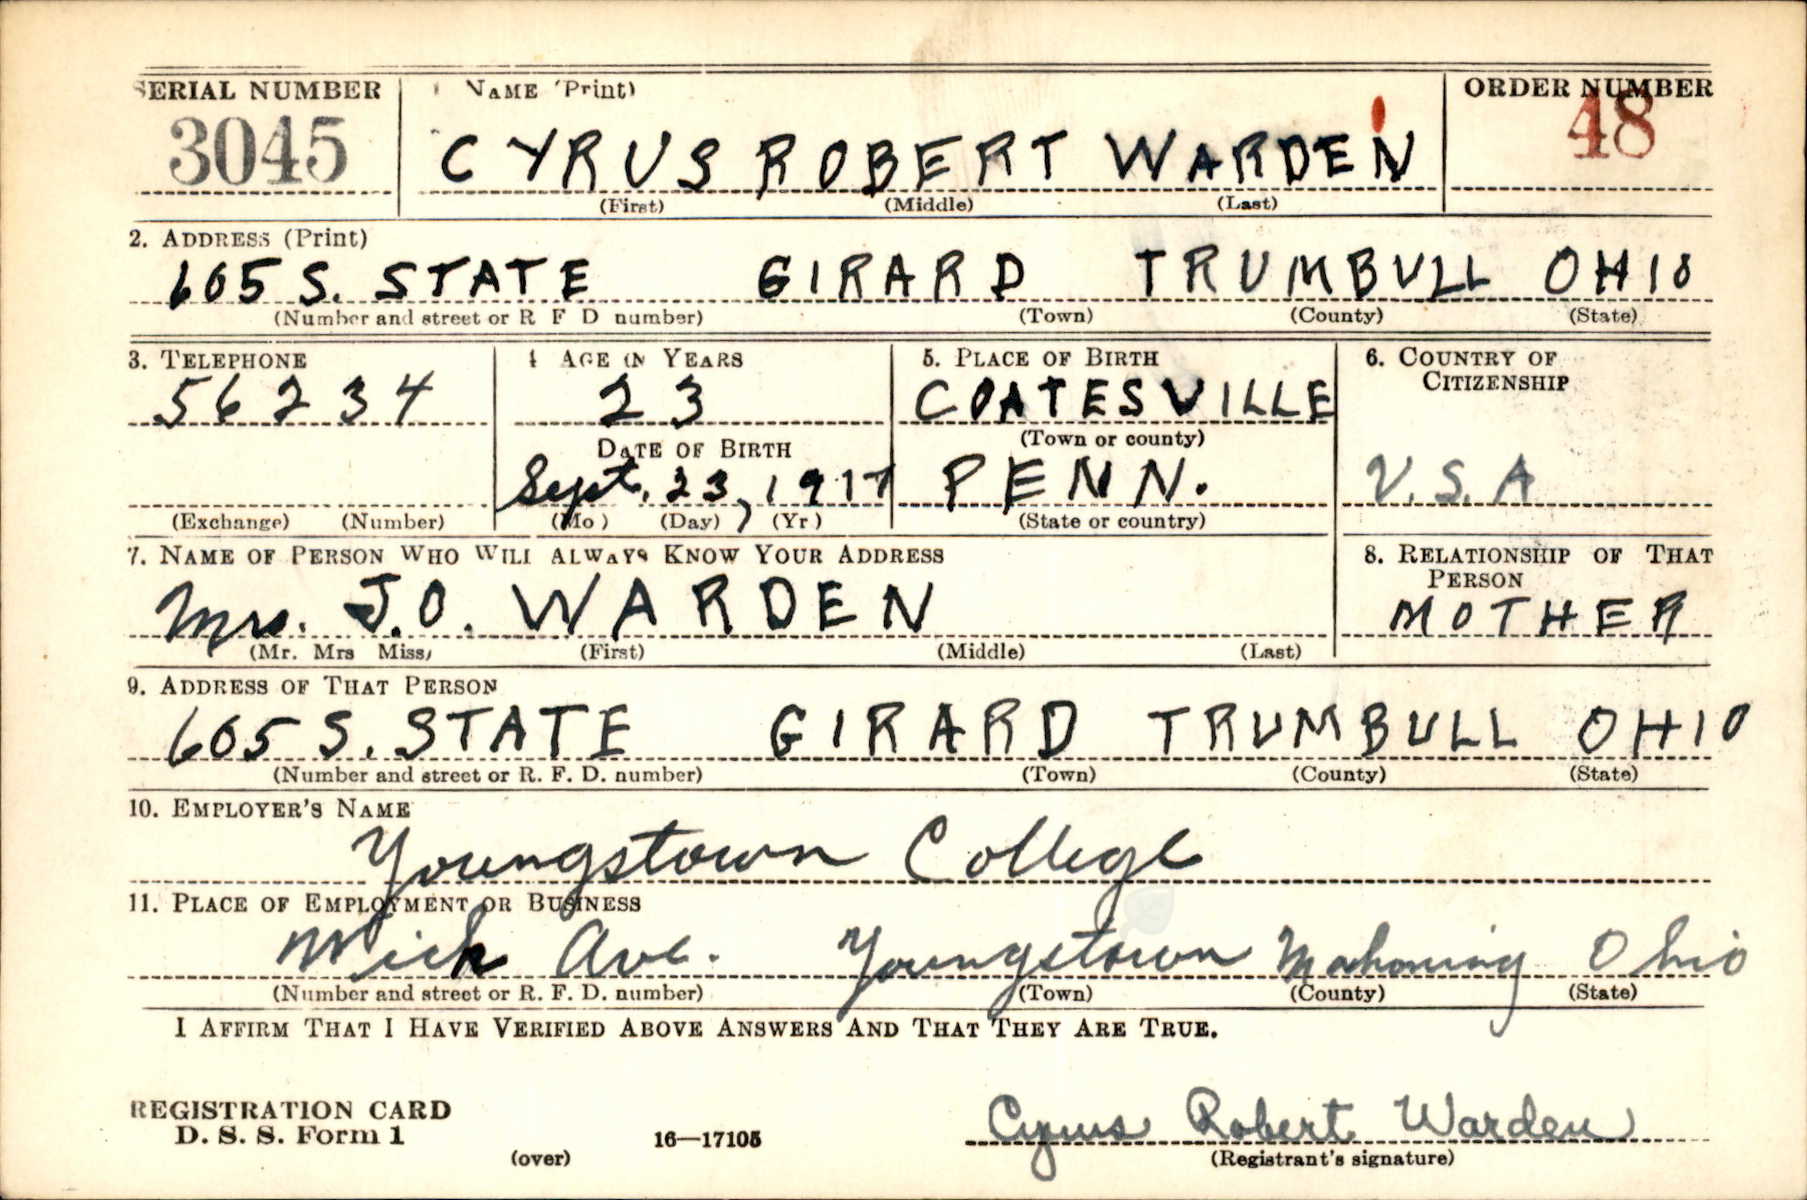 SERIAL NUMBER
NAME (Print)
ORDER NUMBER
3045
CYRUS ROBERT WARDEN
48
(First) (Middle) (Last)
2. ADDRESS (Print)
605 S. STATE GIRARD TRUMBULL OHIO
(Number and street or R F D number) (Town) (County) (State)
3. TELEPHONE
4 AGE IN YEARS
5. PLACE OF BIRTH
6. COUNTRY OF CITIZENSHIP
56234
23
COATESVILLE
(Town or county)
DATE OF BIRTH
Sept. 23, 1917
PENN.
U.S.A
(Exchange) (Number)
(Mo) (Day) (Yr)
(State or country)
7. NAME OF PERSON WHO WILL ALWAYS KNOW YOUR ADDRESS
8. RELATIONSHIP OF THAT PERSON
Mrs. J.O. WARDEN
MOTHER
(Mr. Mrs Miss) (First) (Middle) (Last)
9. ADDRESS OF THAT PERSON
605 S. STATE GIRARD TRUMBULL OHIO
(Number and street or R. F. D. number) (Town) (County) (State)
10. EMPLOYER'S NAME
Youngstown College
11. PLACE OF EMPLOYMENT OR BUSINESS
Wick Ave. Youngstown Mahoning Ohio
(Number and street or R. F. D. number) (Town) (County) (State)
I AFFIRM THAT I HAVE VERIFIED ABOVE ANSWERS AND THAT THEY ARE TRUE.
REGISTRATION CARD
D. S. S. Form 1
(over)
16—17105
Cyrus Robert Warden
(Registrant's signature)